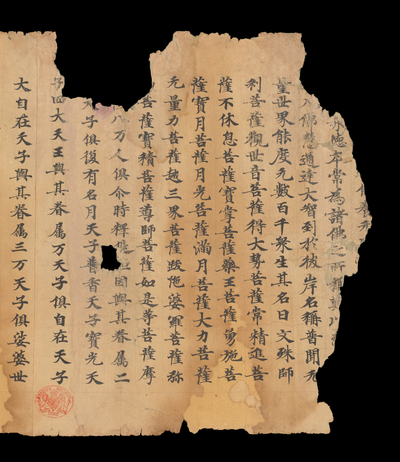 德本常為諸佛之所稱歎
佛慧通達大智到於彼岸名稱普聞无
量世界能度无數百千衆生其名曰文殊師
利菩薩觀世音菩薩得大勢菩薩常精進菩
薩不休息菩薩寶掌菩薩藥王菩薩勇施菩
薩寶月菩薩月光菩薩滿月菩薩大力菩薩
无量力菩薩越三界菩薩跋陁婆羅菩薩弥
菩薩寶積菩薩導師菩薩如是等菩薩摩
八万人俱尒時釋提因與其眷属二
天子俱復有名月天子普香天子寶光天
子四大天王與其眷属万天子俱自在天子
大自在天子與其眷属三万天子俱娑婆世